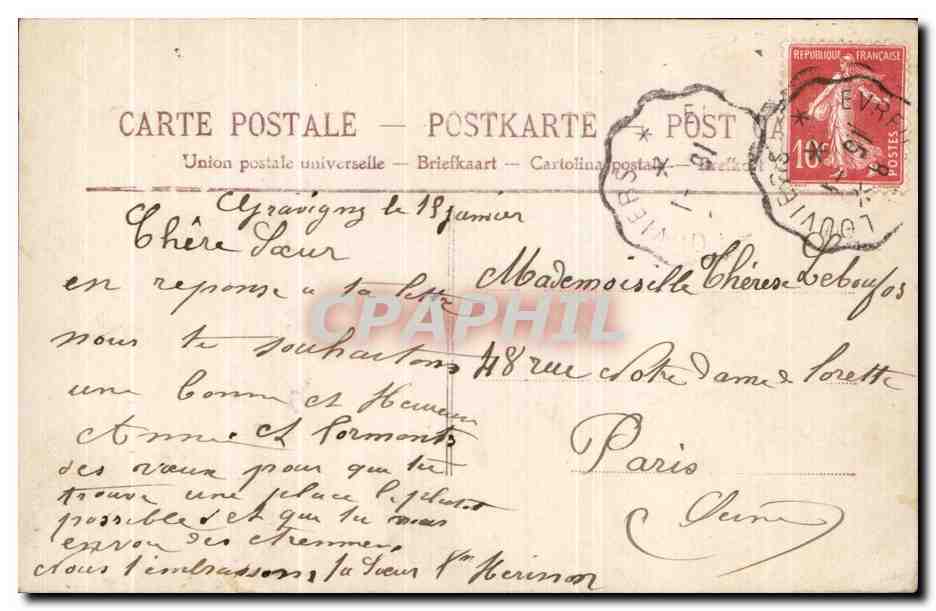 CARTE POSTALE — POSTKARTE — POST CA
Union postale universelle — Briefkaart — Cartolina postale — Brefkort
REPUBLIQUE FRANÇAISE
10c
POSTES
LOUVIERS
EVREUX
15
LOUVIERS
Gravigny le 15 janvier
Chère Sœur
en reponse a ta lettre
nous te souhaitons
une Bonne et Heureuse
Année et formons
des vœux pour que tu
trouve une place le plutot
possible et que tu nous
envoie des etrennes
Nous t'embrassons ta Sœur Herisson
Mademoiselle Thérèse
48 rue Notre Dame de Lorette
Paris
Seine
CPAPHIL